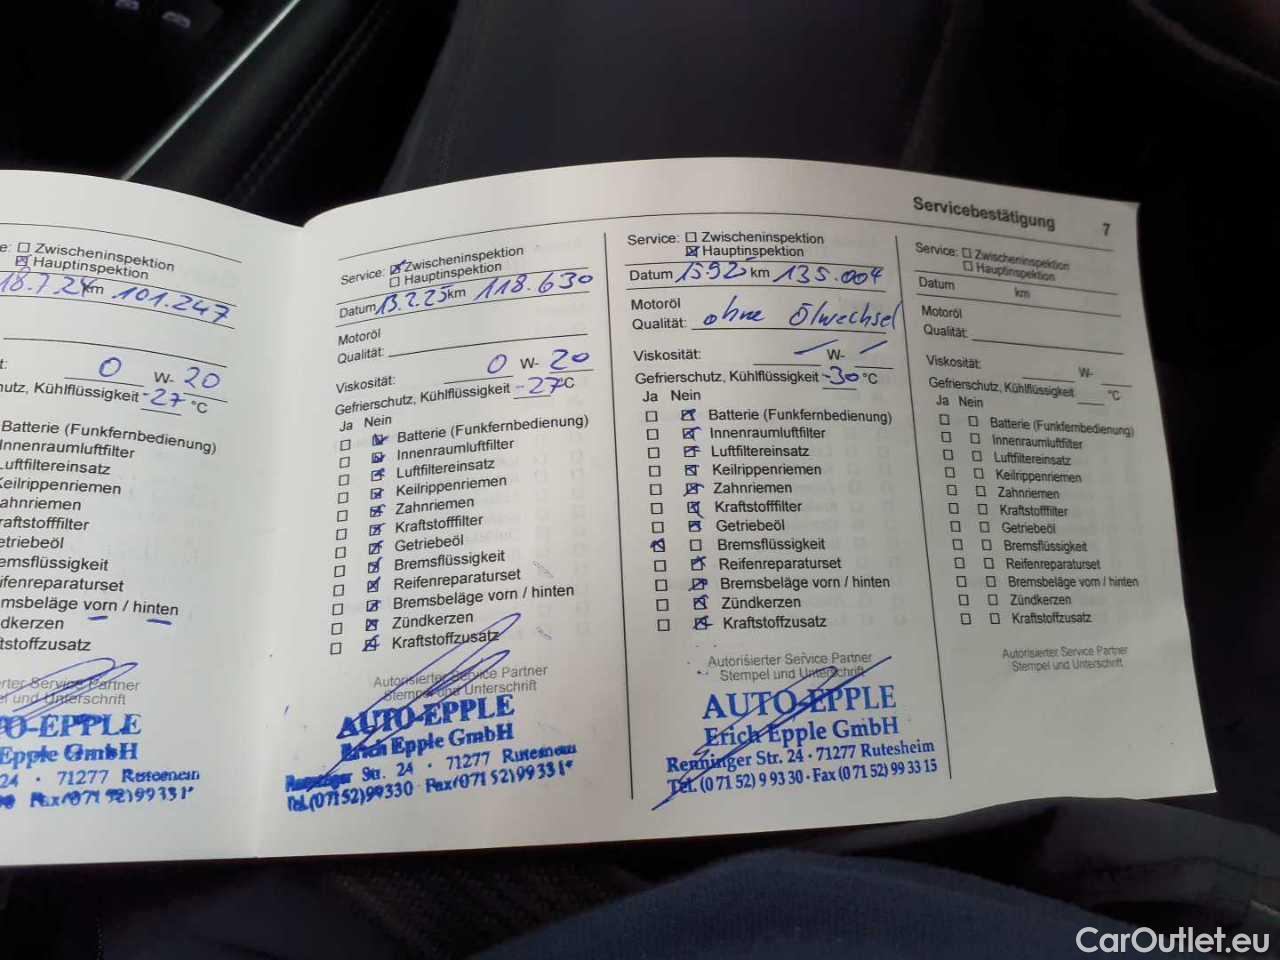 Servicebestätigung 7
e: Zwischeninspektion
Hauptinspektion
18.7.24 km 101.247
0 W- 20
hutz, Kühlflüssigkeit -27 °C
Batterie (Funkfernbedienung)
Innenraumluftfilter
Luftfiltereinsatz
Keilrippenriemen
ahnriemen
raftstofffilter
etriebeöl
emsflüssigkeit
eifenreparaturset
emsbeläge vorn / hinten
ndkerzen
ftstoffzusatz
rter Service Partner
el und Unterschrift
O-EPPLE
Epple GmbH
24 · 71277 Rutesheim
Service: Zwischeninspektion
Hauptinspektion
Datum 13.2.25 km 118.630
Motoröl
Qualität:
Viskosität: 0 W- 20
Gefrierschutz, Kühlflüssigkeit -27 °C
Ja Nein
Batterie (Funkfernbedienung)
Innenraumluftfilter
Luftfiltereinsatz
Keilrippenriemen
Zahnriemen
Kraftstofffilter
Getriebeöl
Bremsflüssigkeit
Reifenreparaturset
Bremsbeläge vorn / hinten
Zündkerzen
Kraftstoffzusatz
Autorisierter Service Partner
Stempel und Unterschrift
AUTO-EPPLE
Erich Epple GmbH
Renninger Str. 24 · 71277 Rutesheim
Tel. (0 71 52) 99330 · Fax (0 71 52) 99 33 1
Service: Zwischeninspektion
Hauptinspektion
Datum 15925 km 135.004
Motoröl
Qualität: ohne Ölwechsel
Viskosität: / W- /
Gefrierschutz, Kühlflüssigkeit -30 °C
Ja Nein
Batterie (Funkfernbedienung)
Innenraumluftfilter
Luftfiltereinsatz
Keilrippenriemen
Zahnriemen
Kraftstofffilter
Getriebeöl
Bremsflüssigkeit
Reifenreparaturset
Bremsbeläge vorn / hinten
Zündkerzen
Kraftstoffzusatz
Autorisierter Service Partner
Stempel und Unterschrift
AUTO-EPPLE
Erich Epple GmbH
Renninger Str. 24 · 71277 Rutesheim
Tel. (0 71 52) 9 93 30 · Fax (0 71 52) 99 33 15
Service: Zwischeninspektion
Hauptinspektion
Datum km
Motoröl
Qualität:
Viskosität: W-
Gefrierschutz, Kühlflüssigkeit °C
Ja Nein
Batterie (Funkfernbedienung)
Innenraumluftfilter
Luftfiltereinsatz
Keilrippenriemen
Zahnriemen
Kraftstofffilter
Getriebeöl
Bremsflüssigkeit
Reifenreparaturset
Bremsbeläge vorn / hinten
Zündkerzen
Kraftstoffzusatz
Autorisierter Service Partner
Stempel und Unterschrift
CarOutlet.eu